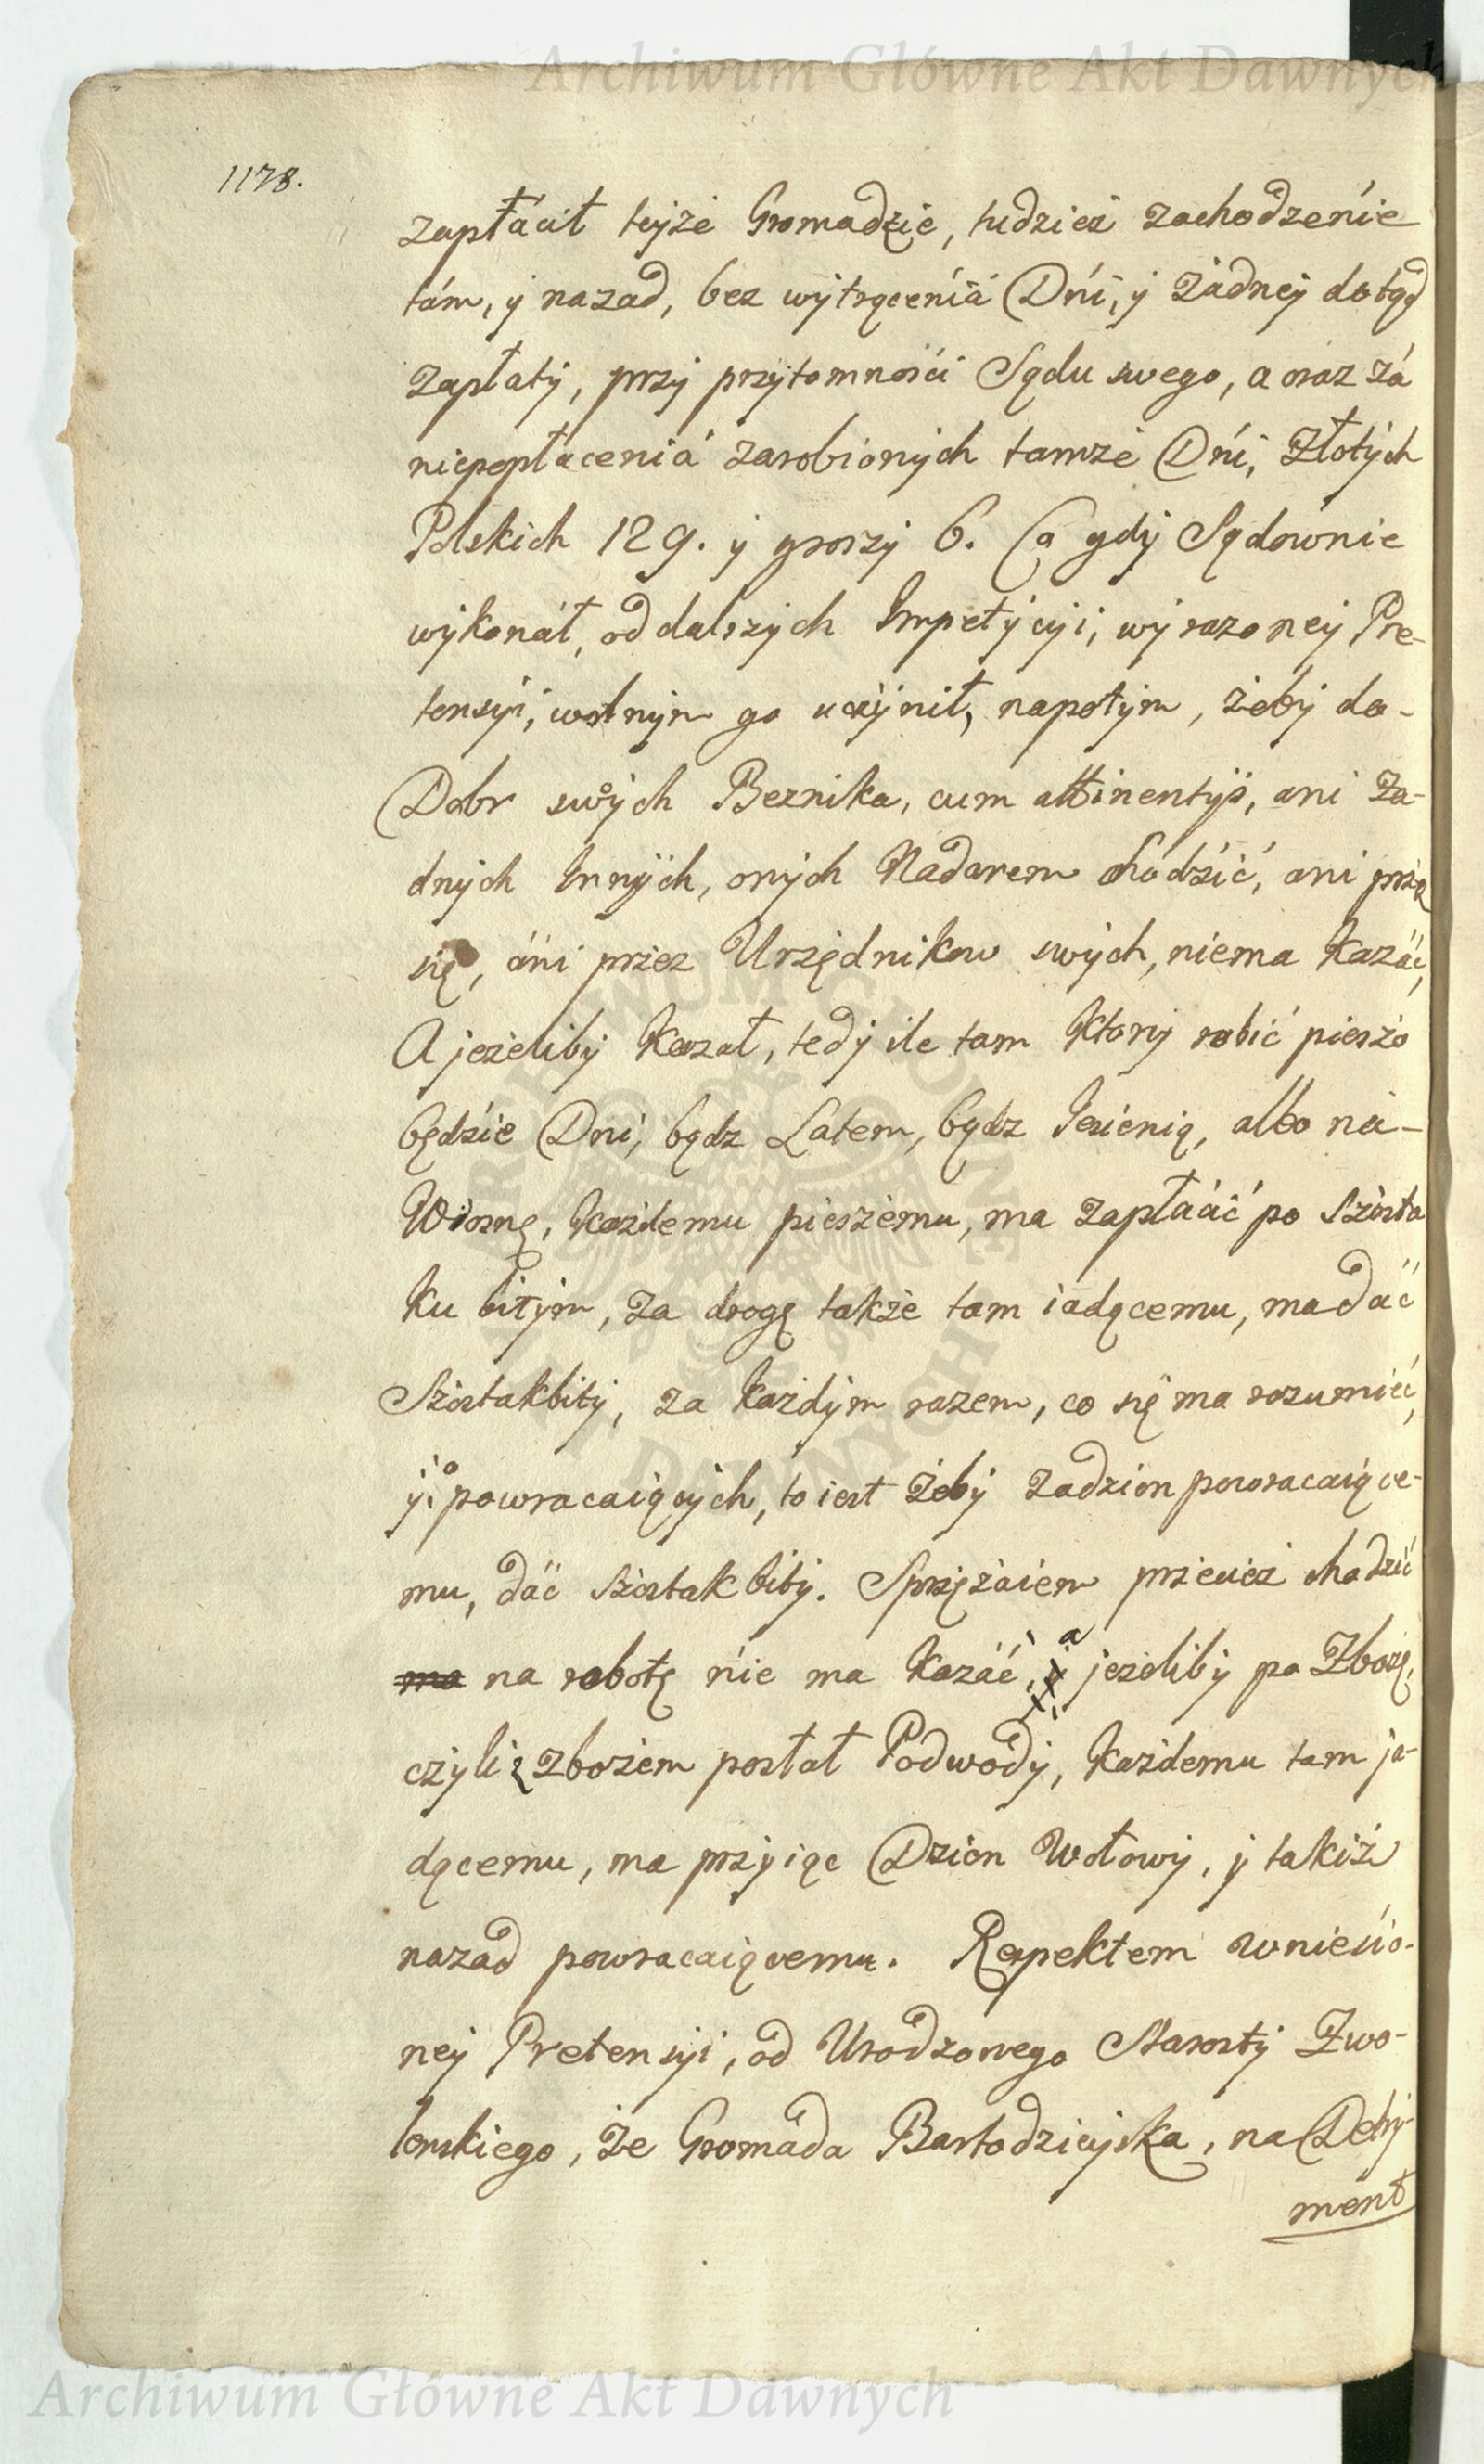 Archiwum Główne Akt Dawnych
1178.
zapłacił teyże Gromadzie, tudzież zachodzenie
tam, y nazad, bez wytrącenia Dni, y żadney dotąd
zapłaty, przy przytomności Sądu swego, a oraz zá
niepopłacenia zarobionych tamże Dni, Złotych
Polskich 129. y groszy 6. Co gdy Sądownie
wykonał, od dalszych Impetycyi, wyrazoney Pre-
tensyi, wolnym go uczynił, napotym, żeby do-
Dobr swoych Beznika, cum attinentys, ani Za-
dnych Innych, onych Nadarem chodzić, ani przez
się, ani przez Urzędnikow swych, niema kazać,
A jeżeliby kazał, tedy ile tam ktory robić pieszo
będzie Dni, bądz Latem, bądz Jesienią, albo na-
Wiosnę, każdemu pieszemu, ma zapłacić po szosta
ku bitym, za drogę także tam iadącemu, ma dać
Szostakbity, za każdym razem, co się ma rozumieć,
y o powracaiących, to iest żeby zadzien powracaiące-
mu, dać szostak bity. Sprzężaiem przecież chodzić
ma na robotę nie ma kazać, a jeżeliby po Zboże,
czyli z zbożem posłał Podwody, każdemu tam ja-
dącemu, ma przyiąc Dzien Wołowy, y takiż
nazad powracaiącemu. Respektem wniesio-
ney Pretensyi, od Urodzonego Starosty Zwo-
lenskiego, że Gromada Bartodzieyska, na Detry-
ment
Archiwum Główne Akt Dawnych